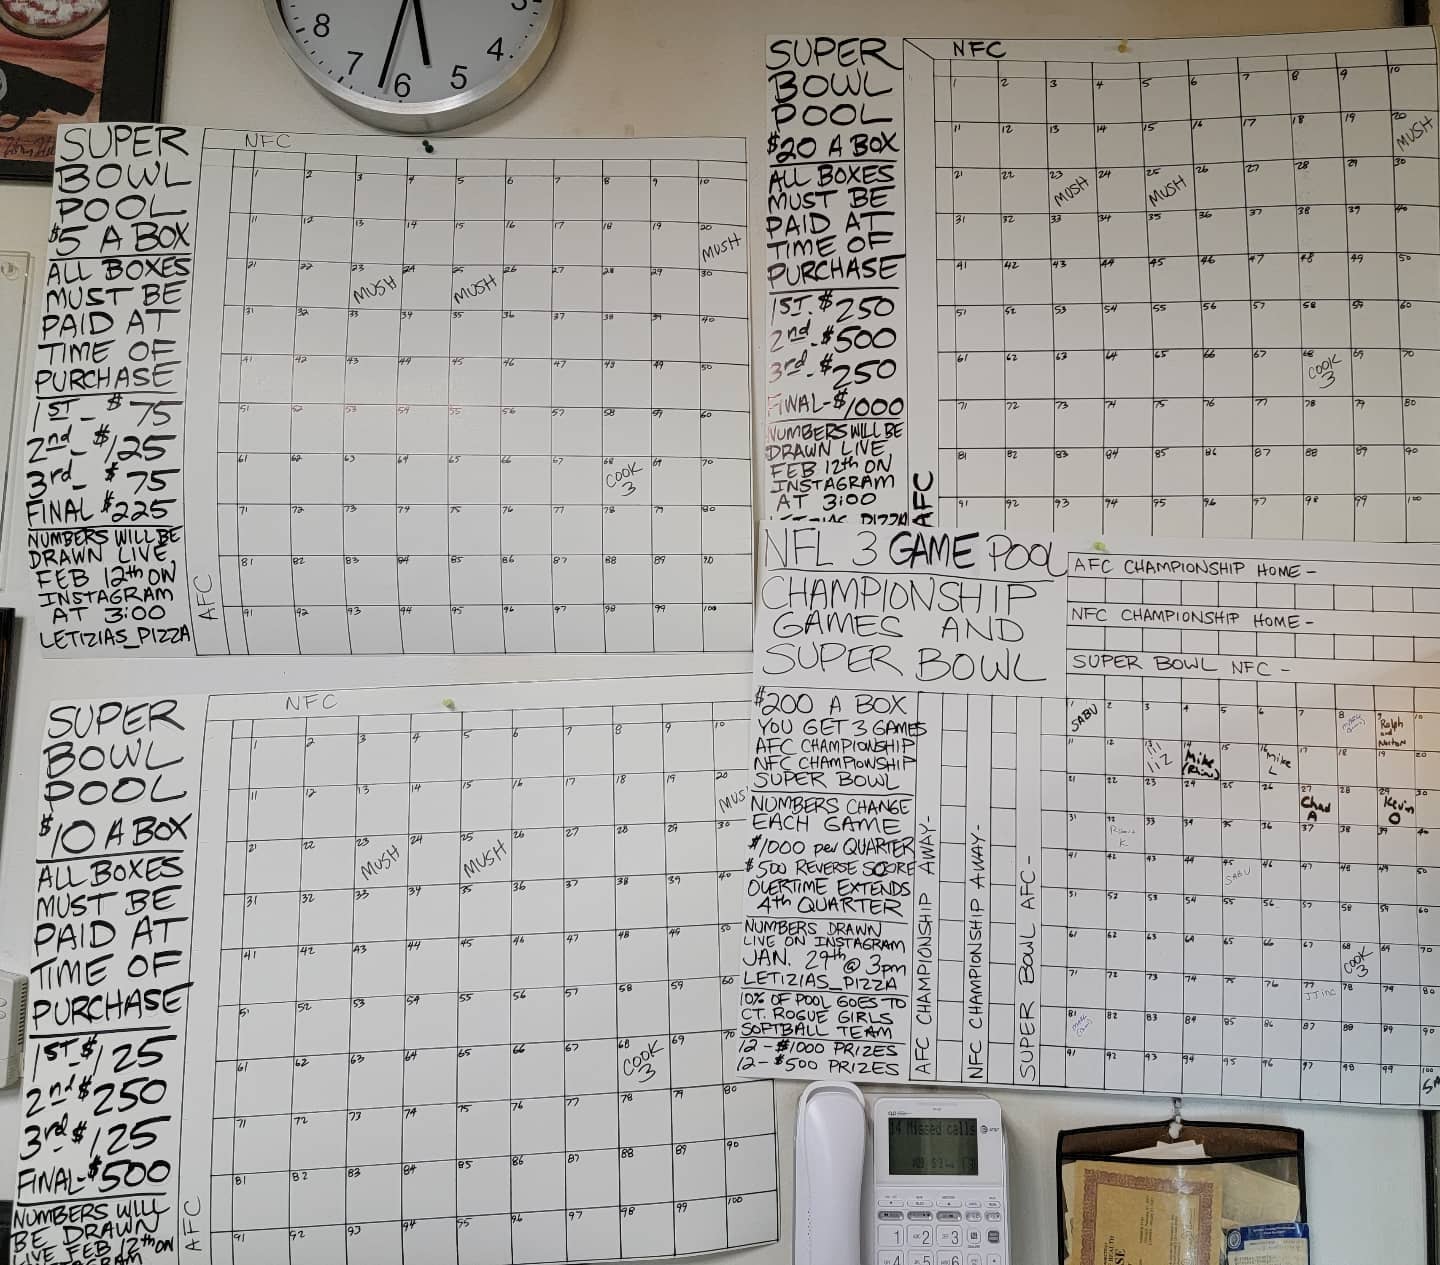 8
7
6
5
4
3
SUPER
BOWL
POOL
$5 A BOX
ALL BOXES
MUST BE
PAID AT
TIME OF
PURCHASE
1ST - $75
2nd - $125
3rd - $75
FINAL $225
NUMBERS WILL BE
DRAWN LIVE
FEB 12th ON
INSTAGRAM
AT 3:00
LETIZIAS_PIZZA
NFC
AFC
1 2 3 4 5 6 7 8 9 10
11 12 13 14 15 16 17 18 19 20
MUSH
21 22 23 24 25 26 27 28 29 30
MUSH MUSH
31 32 33 34 35 36 37 38 39 40
41 42 43 44 45 46 47 48 49 50
51 52 53 54 55 56 57 58 59 60
61 62 63 64 65 66 67 68 69 70
COOK
3
71 72 73 74 75 76 77 78 79 80
81 82 83 84 85 86 87 88 89 90
91 92 93 94 95 96 97 98 99 100
SUPER
BOWL
POOL
$20 A BOX
ALL BOXES
MUST BE
PAID AT
TIME OF
PURCHASE
1ST. $250
2nd - $500
3rd - $250
FINAL - $1000
NUMBERS WILL BE
DRAWN LIVE
FEB 12th ON
INSTAGRAM
AT 3:00
LETIZIAS_PIZZA
NFC
AFC
1 2 3 4 5 6 7 8 9 10
11 12 13 14 15 16 17 18 19 20
MUSH
21 22 23 24 25 26 27 28 29 30
MUSH MUSH
31 32 33 34 35 36 37 38 39 40
41 42 43 44 45 46 47 48 49 50
51 52 53 54 55 56 57 58 59 60
61 62 63 64 65 66 67 68 69 70
COOK
3
71 72 73 74 75 76 77 78 79 80
81 82 83 84 85 86 87 88 89 90
91 92 93 94 95 96 97 98 99 100
SUPER
BOWL
POOL
$10 A BOX
ALL BOXES
MUST BE
PAID AT
TIME OF
PURCHASE
1ST $125
2nd $250
3rd $125
FINAL - $500
NUMBERS WILL
BE DRAWN
LIVE FEB 12th ON
INSTAGRAM
NFC
AFC
1 2 3 4 5 6 7 8 9 10
11 12 13 14 15 16 17 18 19 20
MUSH
21 22 23 24 25 26 27 28 29 30
MUSH MUSH
31 32 33 34 35 36 37 38 39 40
41 42 43 44 45 46 47 48 49 50
51 52 53 54 55 56 57 58 59 60
61 62 63 64 65 66 67 68 69 70
COOK
3
71 72 73 74 75 76 77 78 79 80
81 82 83 84 85 86 87 88 89 90
91 92 93 94 95 96 97 98 99 100
NFL 3 GAME POOL
CHAMPIONSHIP
GAMES AND
SUPER BOWL
$200 A BOX
YOU GET 3 GAMES
AFC CHAMPIONSHIP
NFC CHAMPIONSHIP
SUPER BOWL
NUMBERS CHANGE
EACH GAME
$1000 per QUARTER
$500 REVERSE SCORE
OVERTIME EXTENDS
4th QUARTER
NUMBERS DRAWN
LIVE ON INSTAGRAM
JAN. 29th @ 3pm
LETIZIAS_PIZZA
10% OF POOL GOES TO
CT. ROGUE GIRLS
SOFTBALL TEAM
12 - $1000 PRIZES
12 - $500 PRIZES
AFC CHAMPIONSHIP HOME -
NFC CHAMPIONSHIP HOME -
SUPER BOWL NFC -
AFC CHAMPIONSHIP AWAY -
NFC CHAMPIONSHIP AWAY -
SUPER BOWL AFC -
1 2 3 4 5 6 7 8 9 10
SABU Ralph and Norton
11 12 13 14 15 16 17 18 19 20
Mike (Rhino) Mike L
21 22 23 24 25 26 27 28 29 30
Chad A Kevin O
31 32 33 34 35 36 37 38 39 40
K.
41 42 43 44 45 46 47 48 49 50
SABU
51 52 53 54 55 56 57 58 59 60
61 62 63 64 65 66 67 68 69 70
COOK
3
71 72 73 74 75 76 77 78 79 80
JT inc
81 82 83 84 85 86 87 88 89 90
91 92 93 94 95 96 97 98 99 100
Missed calls
at&t
1 2 3
4 5 6